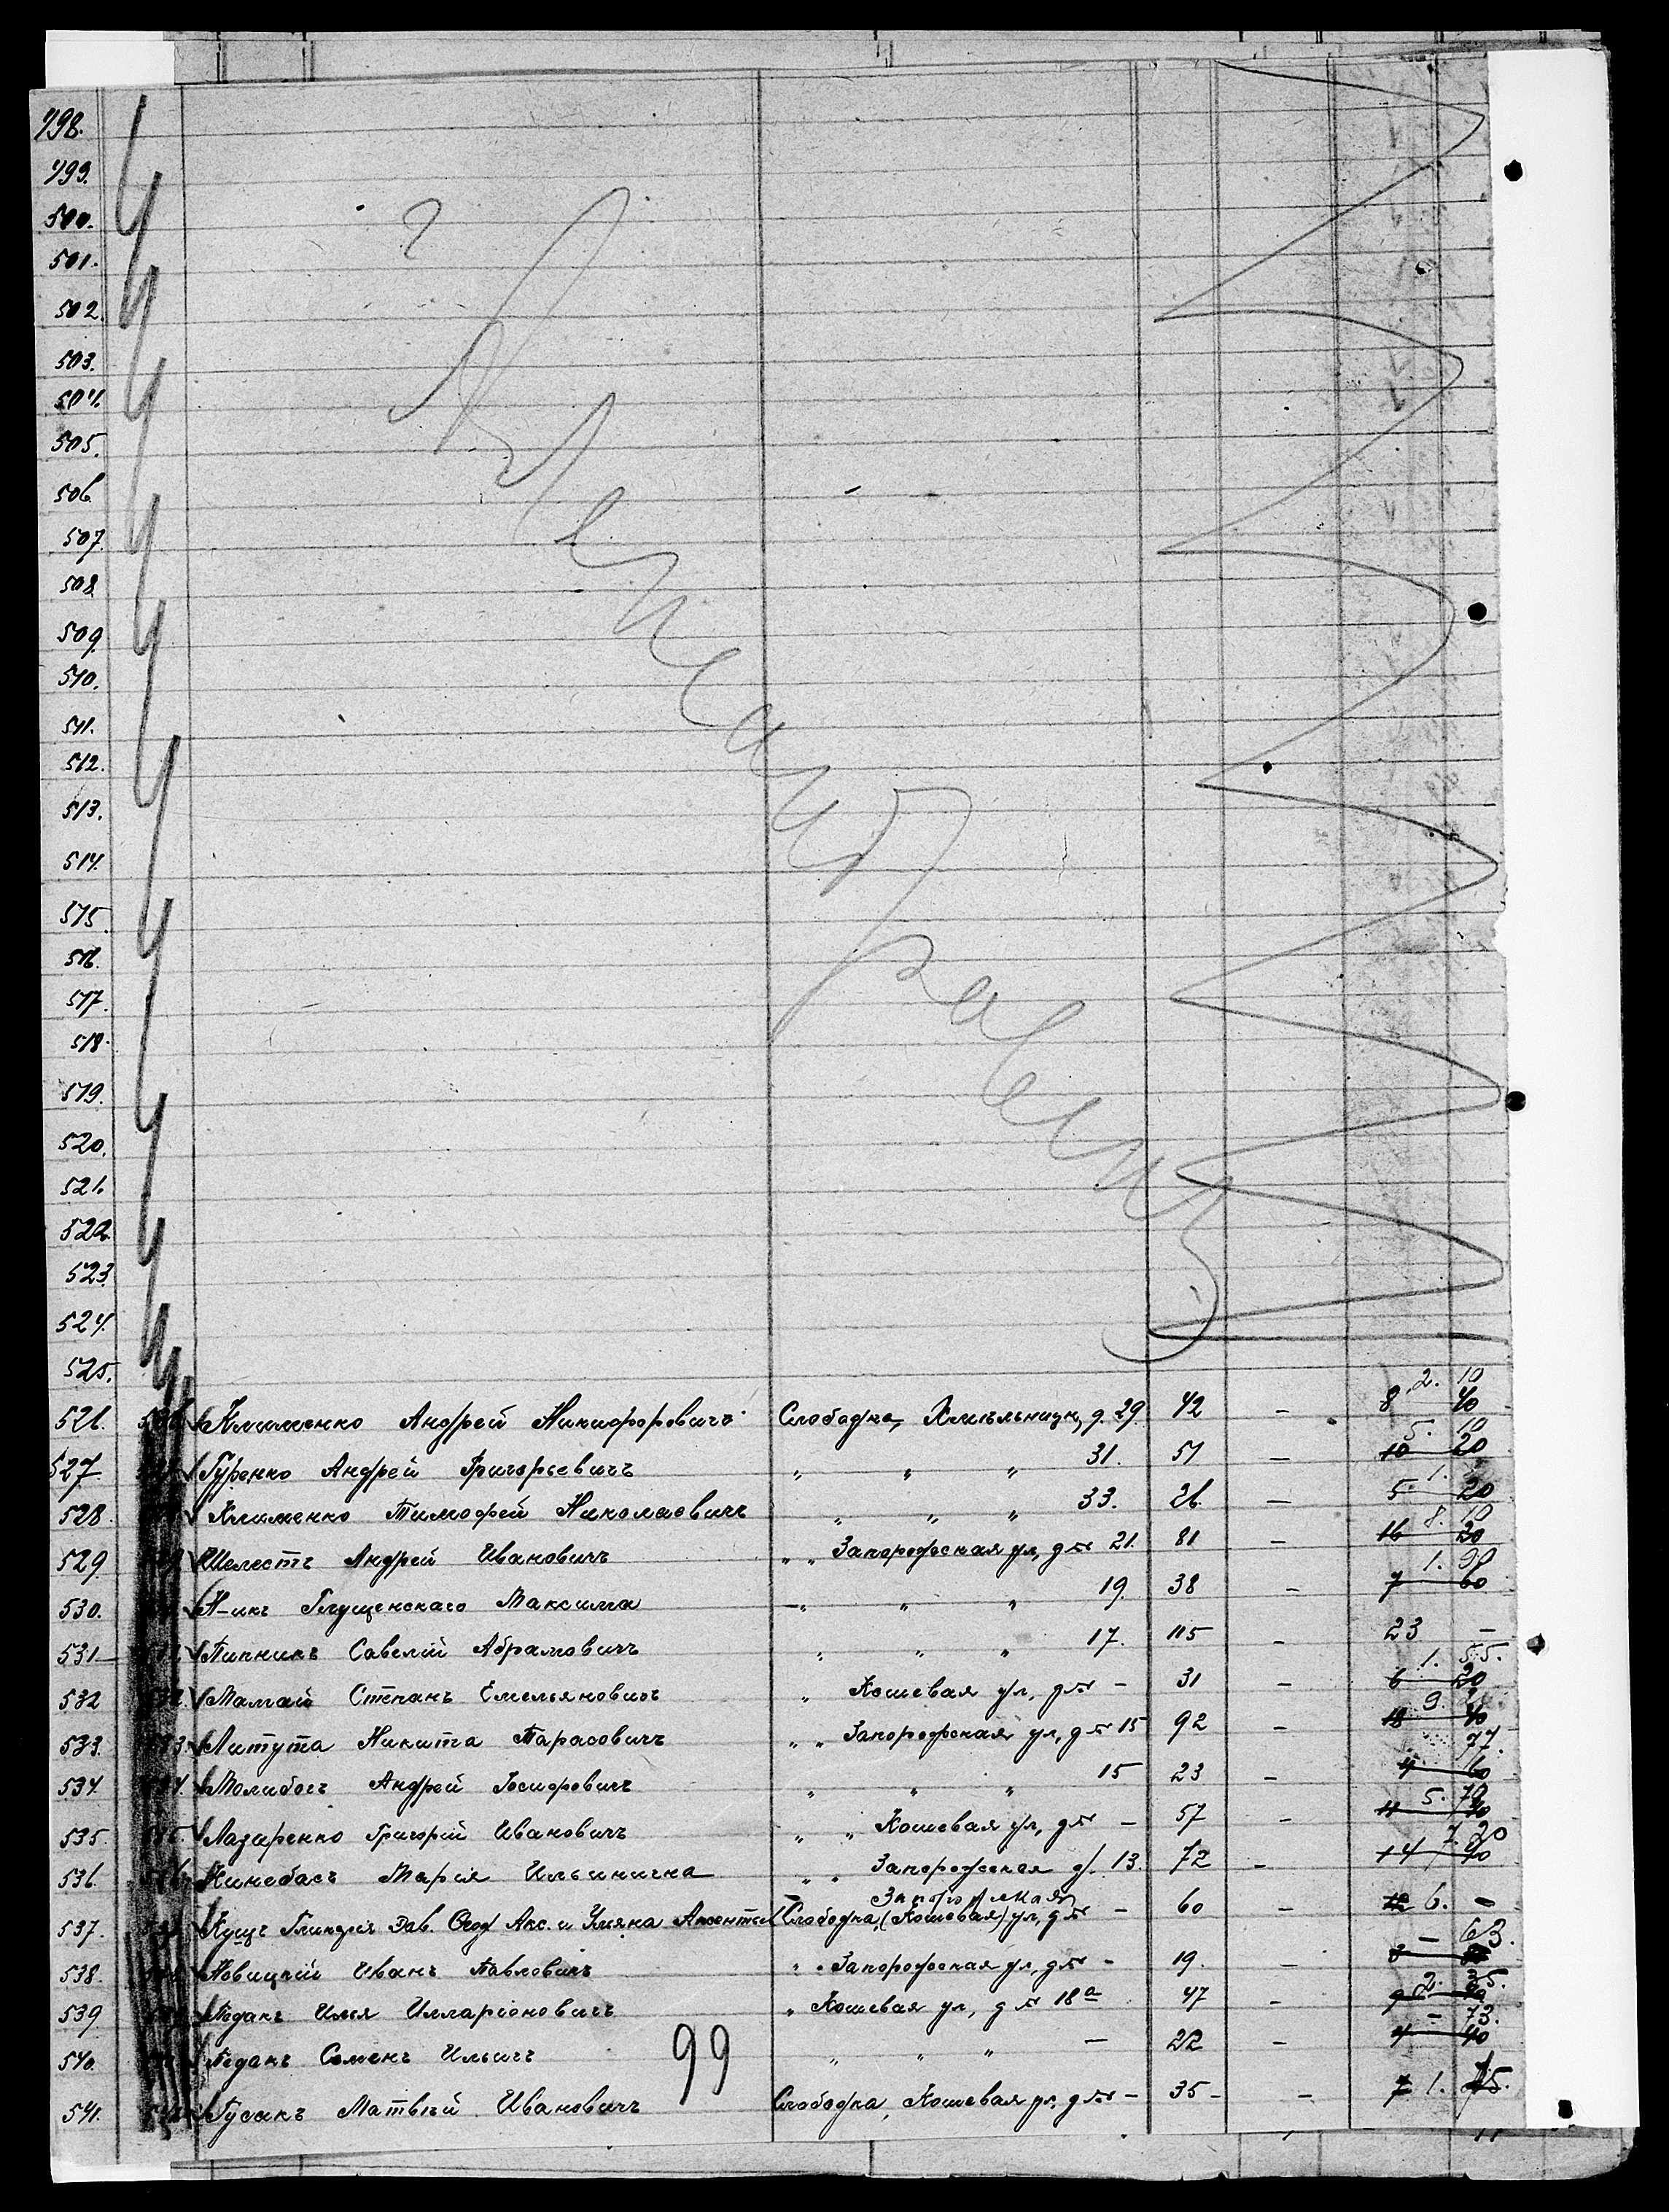 498.
499.
500.
501.
502.
503.
504.
505.
506
507.
508
509.
510.
511.
512.
513.
514.
515.
516.
517.
518.
519.
520.
521.
522.
523.
524.
525.
526. Клименко Андрей Никифоровичъ Слободка, Хмельницк, д. 29. 42 – 8 40 2. 10
527 Гуренко Андрей Григорьевичъ " " " 31. 51 – 10 20 5. 10
528. Клименко Тимофей Николаевичъ " " " 33. 26. – 5 20 1.
529. Шелестъ Андрей Ивановичъ " " Запорожская ул, д № 21. 81 – 16 20 8. 10
530. Н-икъ Глущенскаго Максима " " " 19. 38 – 7 60 1. 90
531 Пипникъ Савелій Абрамовичъ " " " 17. 115 – 23 –
532 Мамай Степанъ Емельяновичъ " Кошевая ул, д № – 31 – 6 20 1. 55.
533. Литута Никита Тарасовичъ " " Запорожская ул, д № 15 92 – 18 40 9.
534. Молибогъ Андрей Іосифовичъ " " " 15 23 – 4 60 77.
535. Лазаренко Григорій Ивановичъ " " Кошевая ул, д № – 57 – 11 40 5. 70
536. Кинебасъ Марія Ильинична " " Запорожская д. 13. 72 – 14 40 7. 20
537. Кущъ Дав. Акс. и Ульяна Слободка, (Кошевая) ул, д № – Запорожская 60 – 12 6. –
538. Новицкій Иванъ Павловичъ " " Запорожская ул, д № – 19. – 3 80 – 63.
539 Педанъ Илья Илларіоновичъ " Кошевая ул, д № 18а 47 – 9 40 2. 35.
540. Педанъ Семенъ Ильичъ " " " – 22 – 4 40 – 73.
541. Гусакъ Матвѣй Ивановичъ Слободка, Кошевая ул, д № – 35 – – 7 1. 75.
99